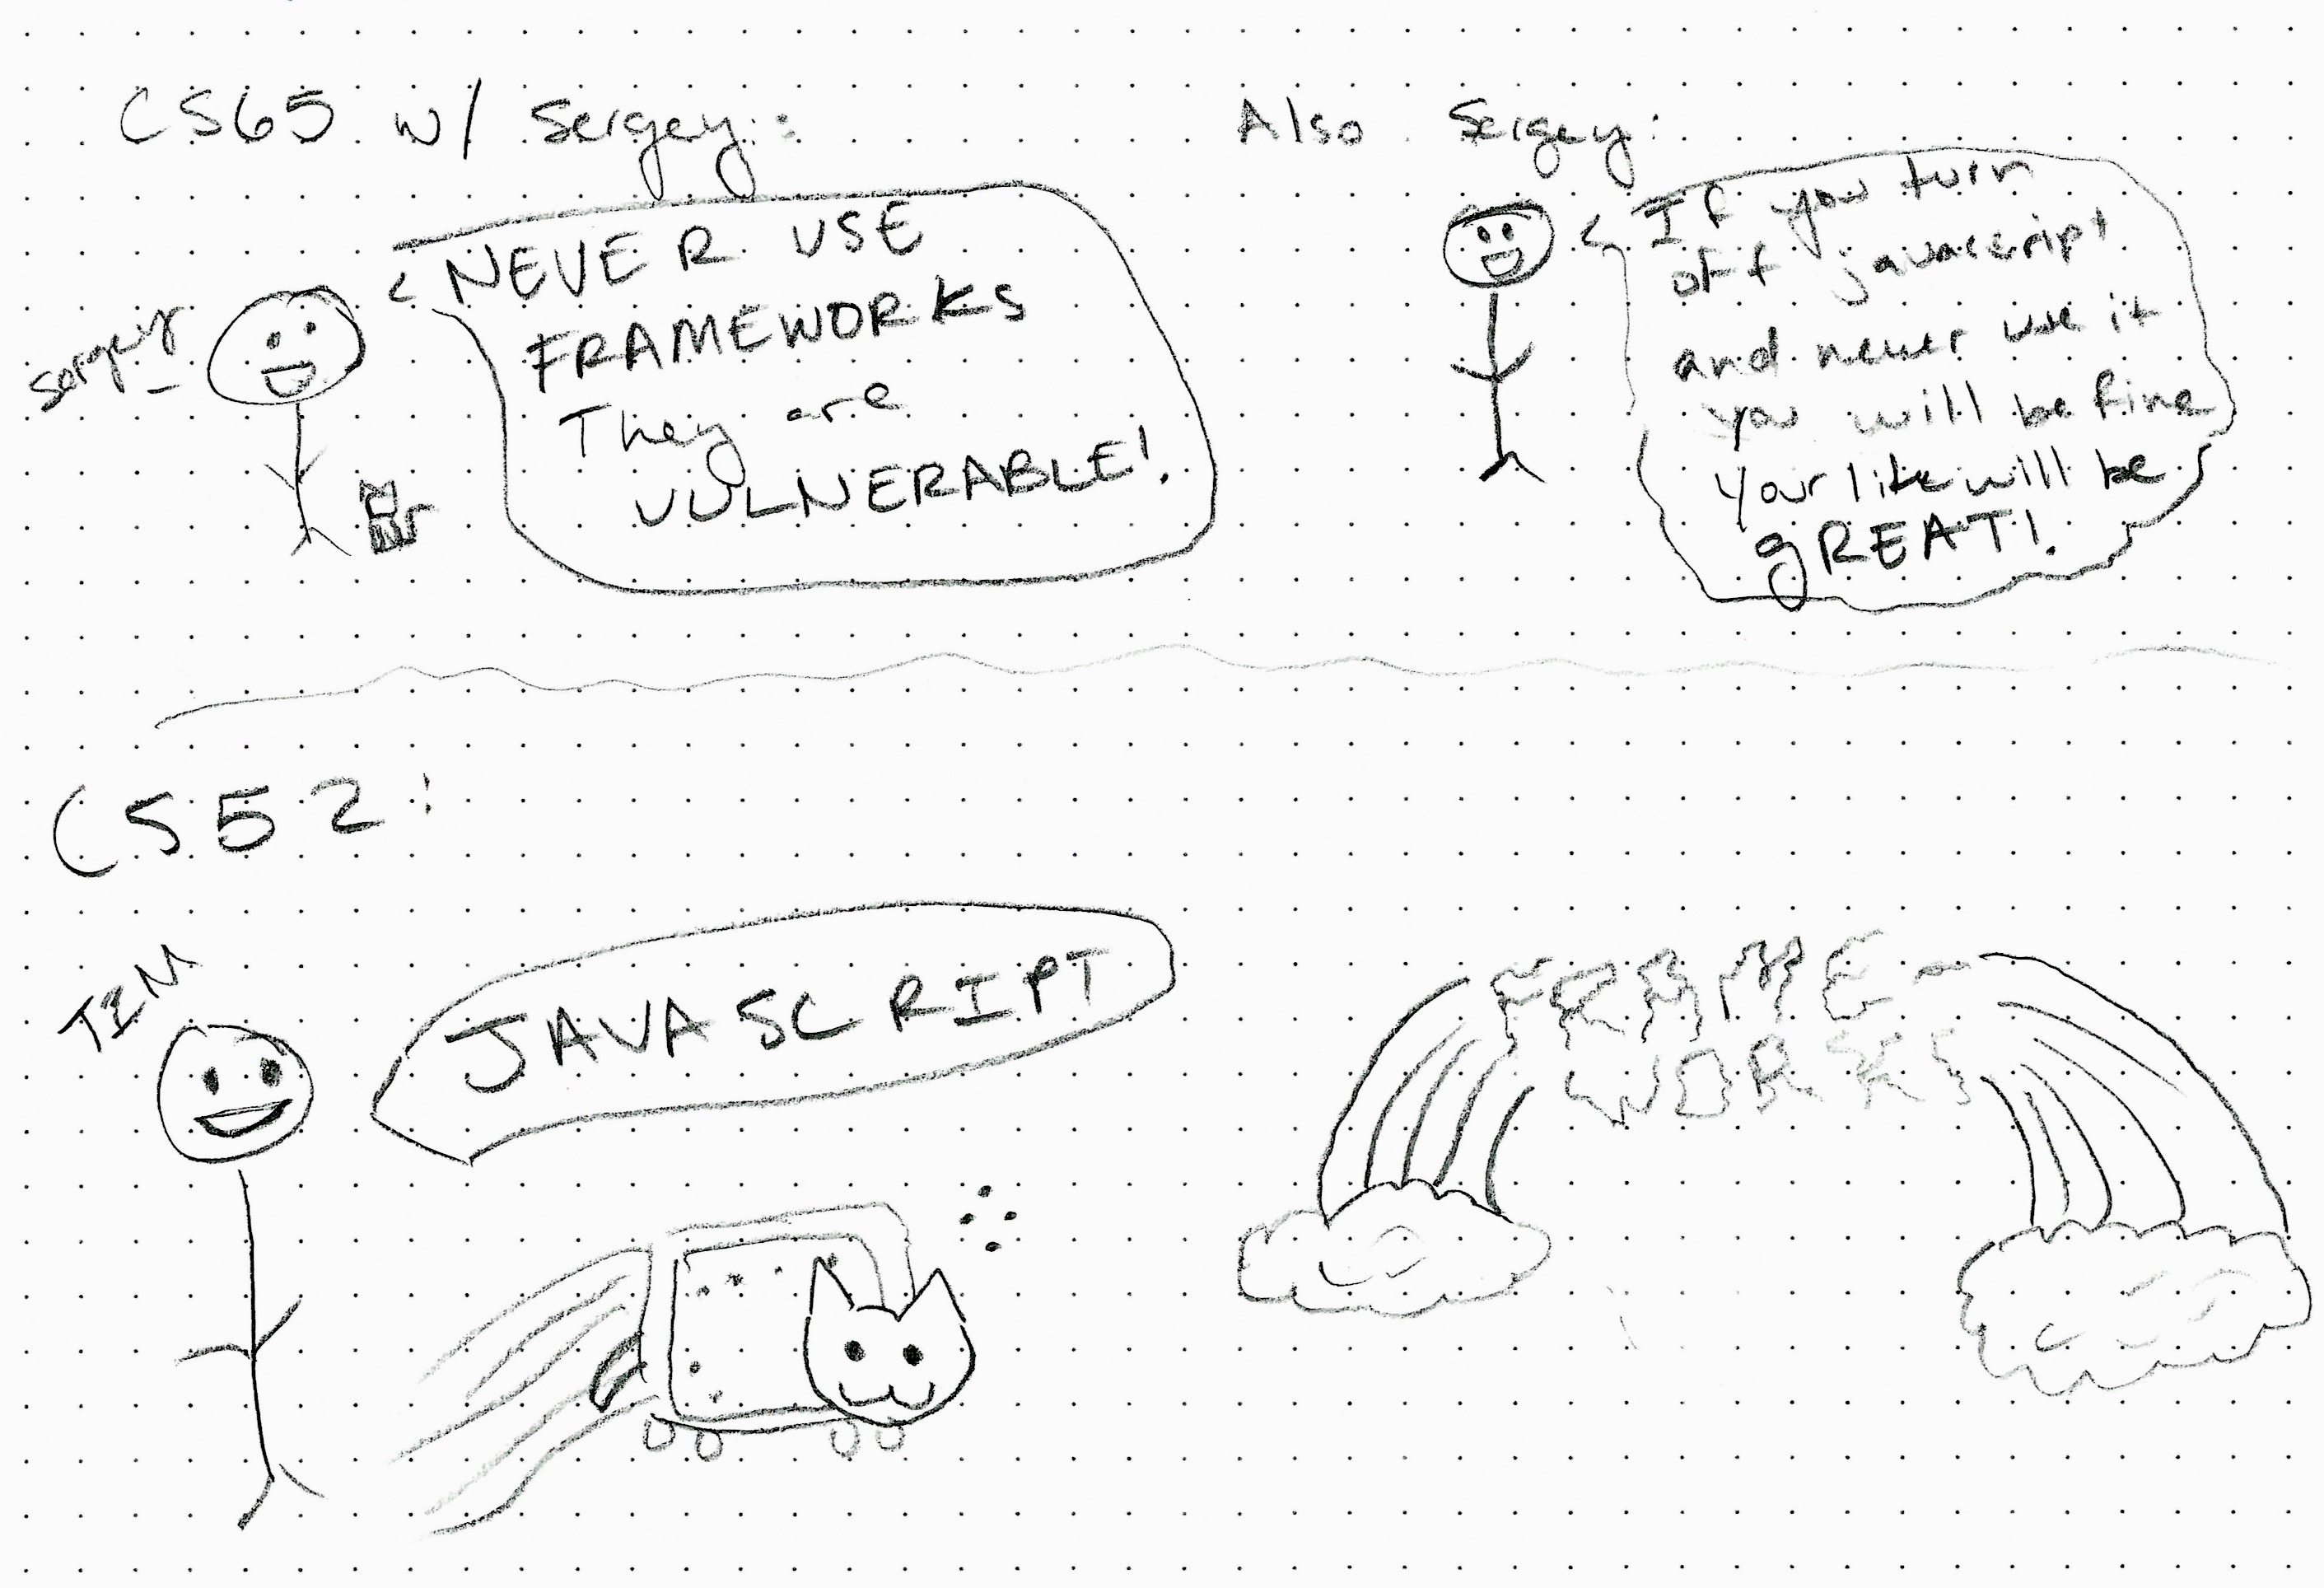 CS65 w/ Sergey:
sergey
NEVER USE
FRAMEWORKS
They are
VULNERABLE!
Also Sergey:
If you turn
off javascript
and never use it
you will be fine
your life will be
gREAT!
CS52:
TIM
JAVASCRIPT
FRAME-
WORKS